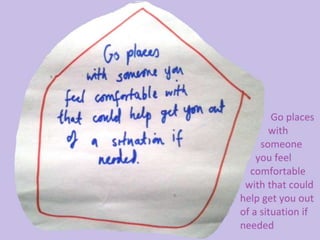 Go places
with someone you
feel comfortable with
that could help get you out
of a situation if
needed.
Go places
with
someone
you feel
comfortable
with that could
help get you out
of a situation if
needed